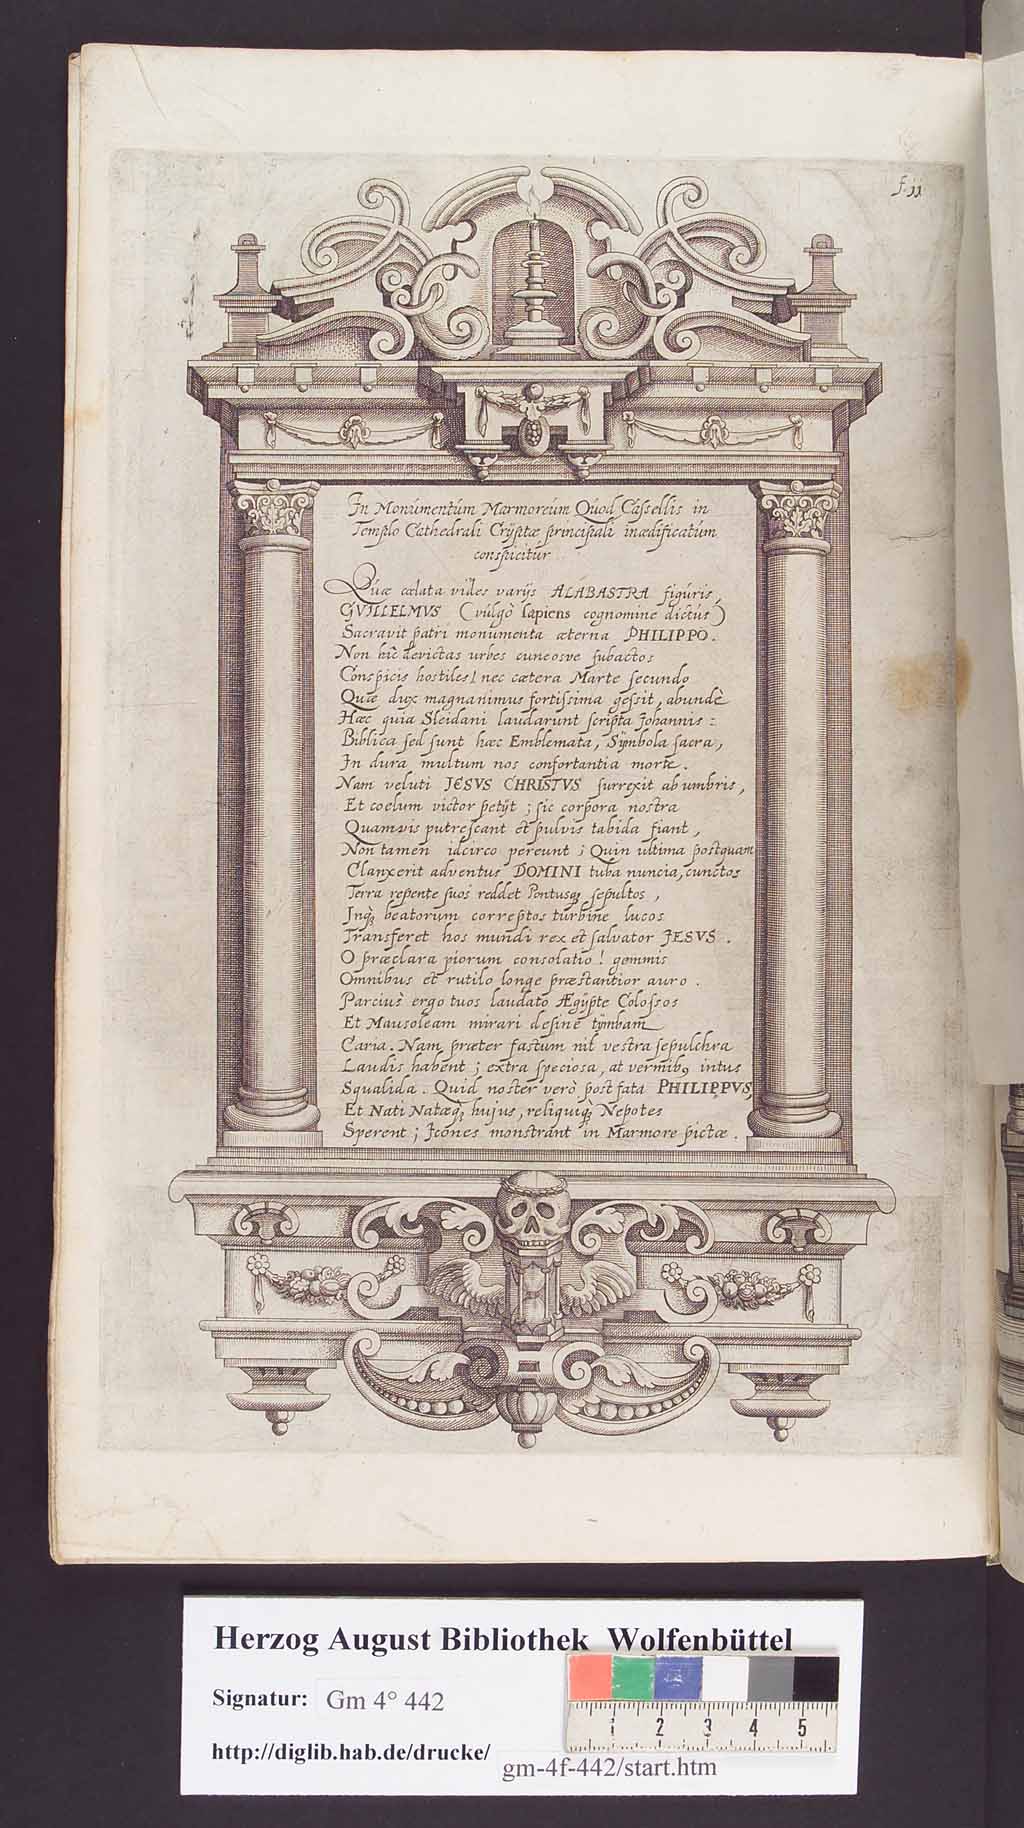 f. 11
In Monúmentúm Marmoreúm Qúod Cassellis in
Templo Cathedrali Crÿptæ principali inædificatúm
conspicitur
Qúæ cælata vides varÿs ALABASTRA figúris,
GVILLELMVS (vúlgò sapiens cognomine dictús)
Sacravit patri monumenta æterna PHILIPPO.
Non hîc devictas urbes cuneosve subactos
Conspicis hostiles! nec cætera Marte secundo
Quæ dux magnanimus fortissima gessit, abundè
Hæc quia Sleidani laudarunt scripta Johannis:
Biblica sed sunt hæc Emblemata, Sÿmbola sacra,
In dura multum nos confortantia morte.
Nam veluti JESVS CHRISTVS surrexit ab umbris,
Et coelum victor petÿt; sic corpora nostra
Quamvis putrescant et pulvis tabida fiant,
Non tamen idcirco pereunt; Quin ultima postquam
Clanxerit adventus DOMINI tuba nuncia, cunctos
Terra repente suos reddet Pontusq; sepultos,
Inq; beatorum correptos turbine lucos
Transferet hos mundi rex et salvator JESVS.
O præclara piorum consolatio! gemmis
Omnibus et rutilo longe præstantior auro.
Parciùs ergo tuos laudato Ægÿpte Colossos
Et Mausoleam mirari desine tÿmbam
Caria. Nam præter fastum nil vestra sepulchra
Laudis habent; extra speciosa, at vermib9 intus
Squalida. Quid noster verò post fata PHILIPPVS,
Et Nati Natæq; hujus, reliquiq; Nepotes
Sperent; Icónes monstrant in Marmore pictæ.
Herzog August Bibliothek Wolfenbüttel
Signatur: Gm 4° 442
http://diglib.hab.de/drucke/ gm-4f-442/start.htm
1 2 3 4 5